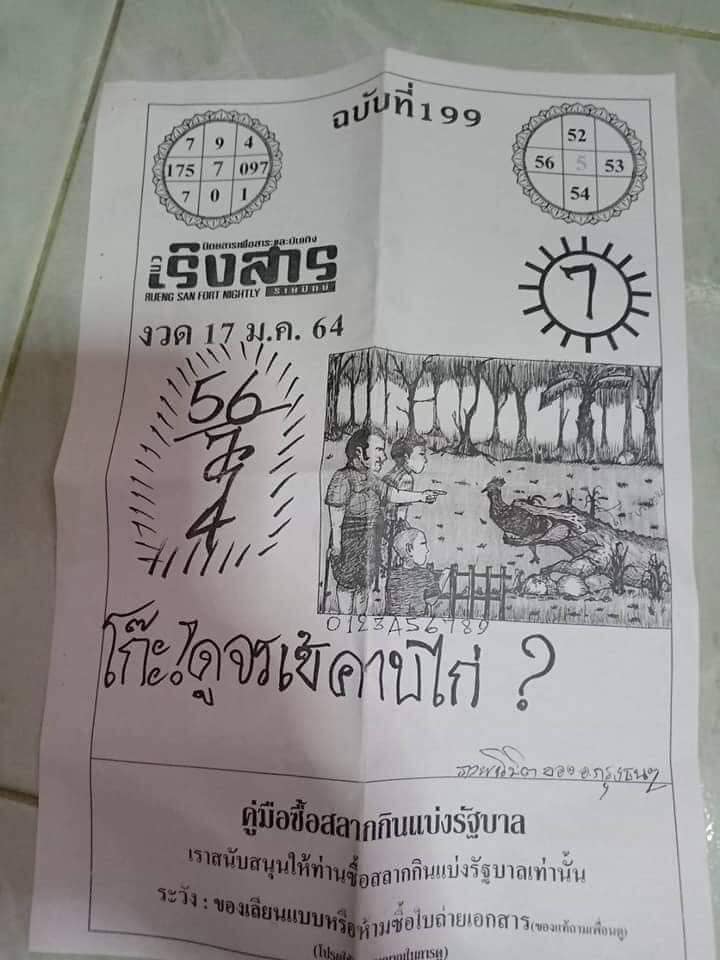 ฉบับที่199
7 9 4
175 7 097
7 0 1
52
56 5 53
54
นิตยสารเพื่อสาระและบันเทิง
เริงสาร
RUENG SAN FORT NIGHTLY รายปักษ์
7
งวด 17 ม.ค. 64
56
7
4
0123456789
โก๊ะ! ดูจรเข้คาบไก่ ?
คู่มือซื้อสลากกินแบ่งรัฐบาล
เราสนับสนุนให้ท่านซื้อสลากกินแบ่งรัฐบาลเท่านั้น
ระวัง : ของเลียนแบบหรือห้ามซื้อใบถ่ายเอกสาร(ของแท้ถามเพื่อนดู)